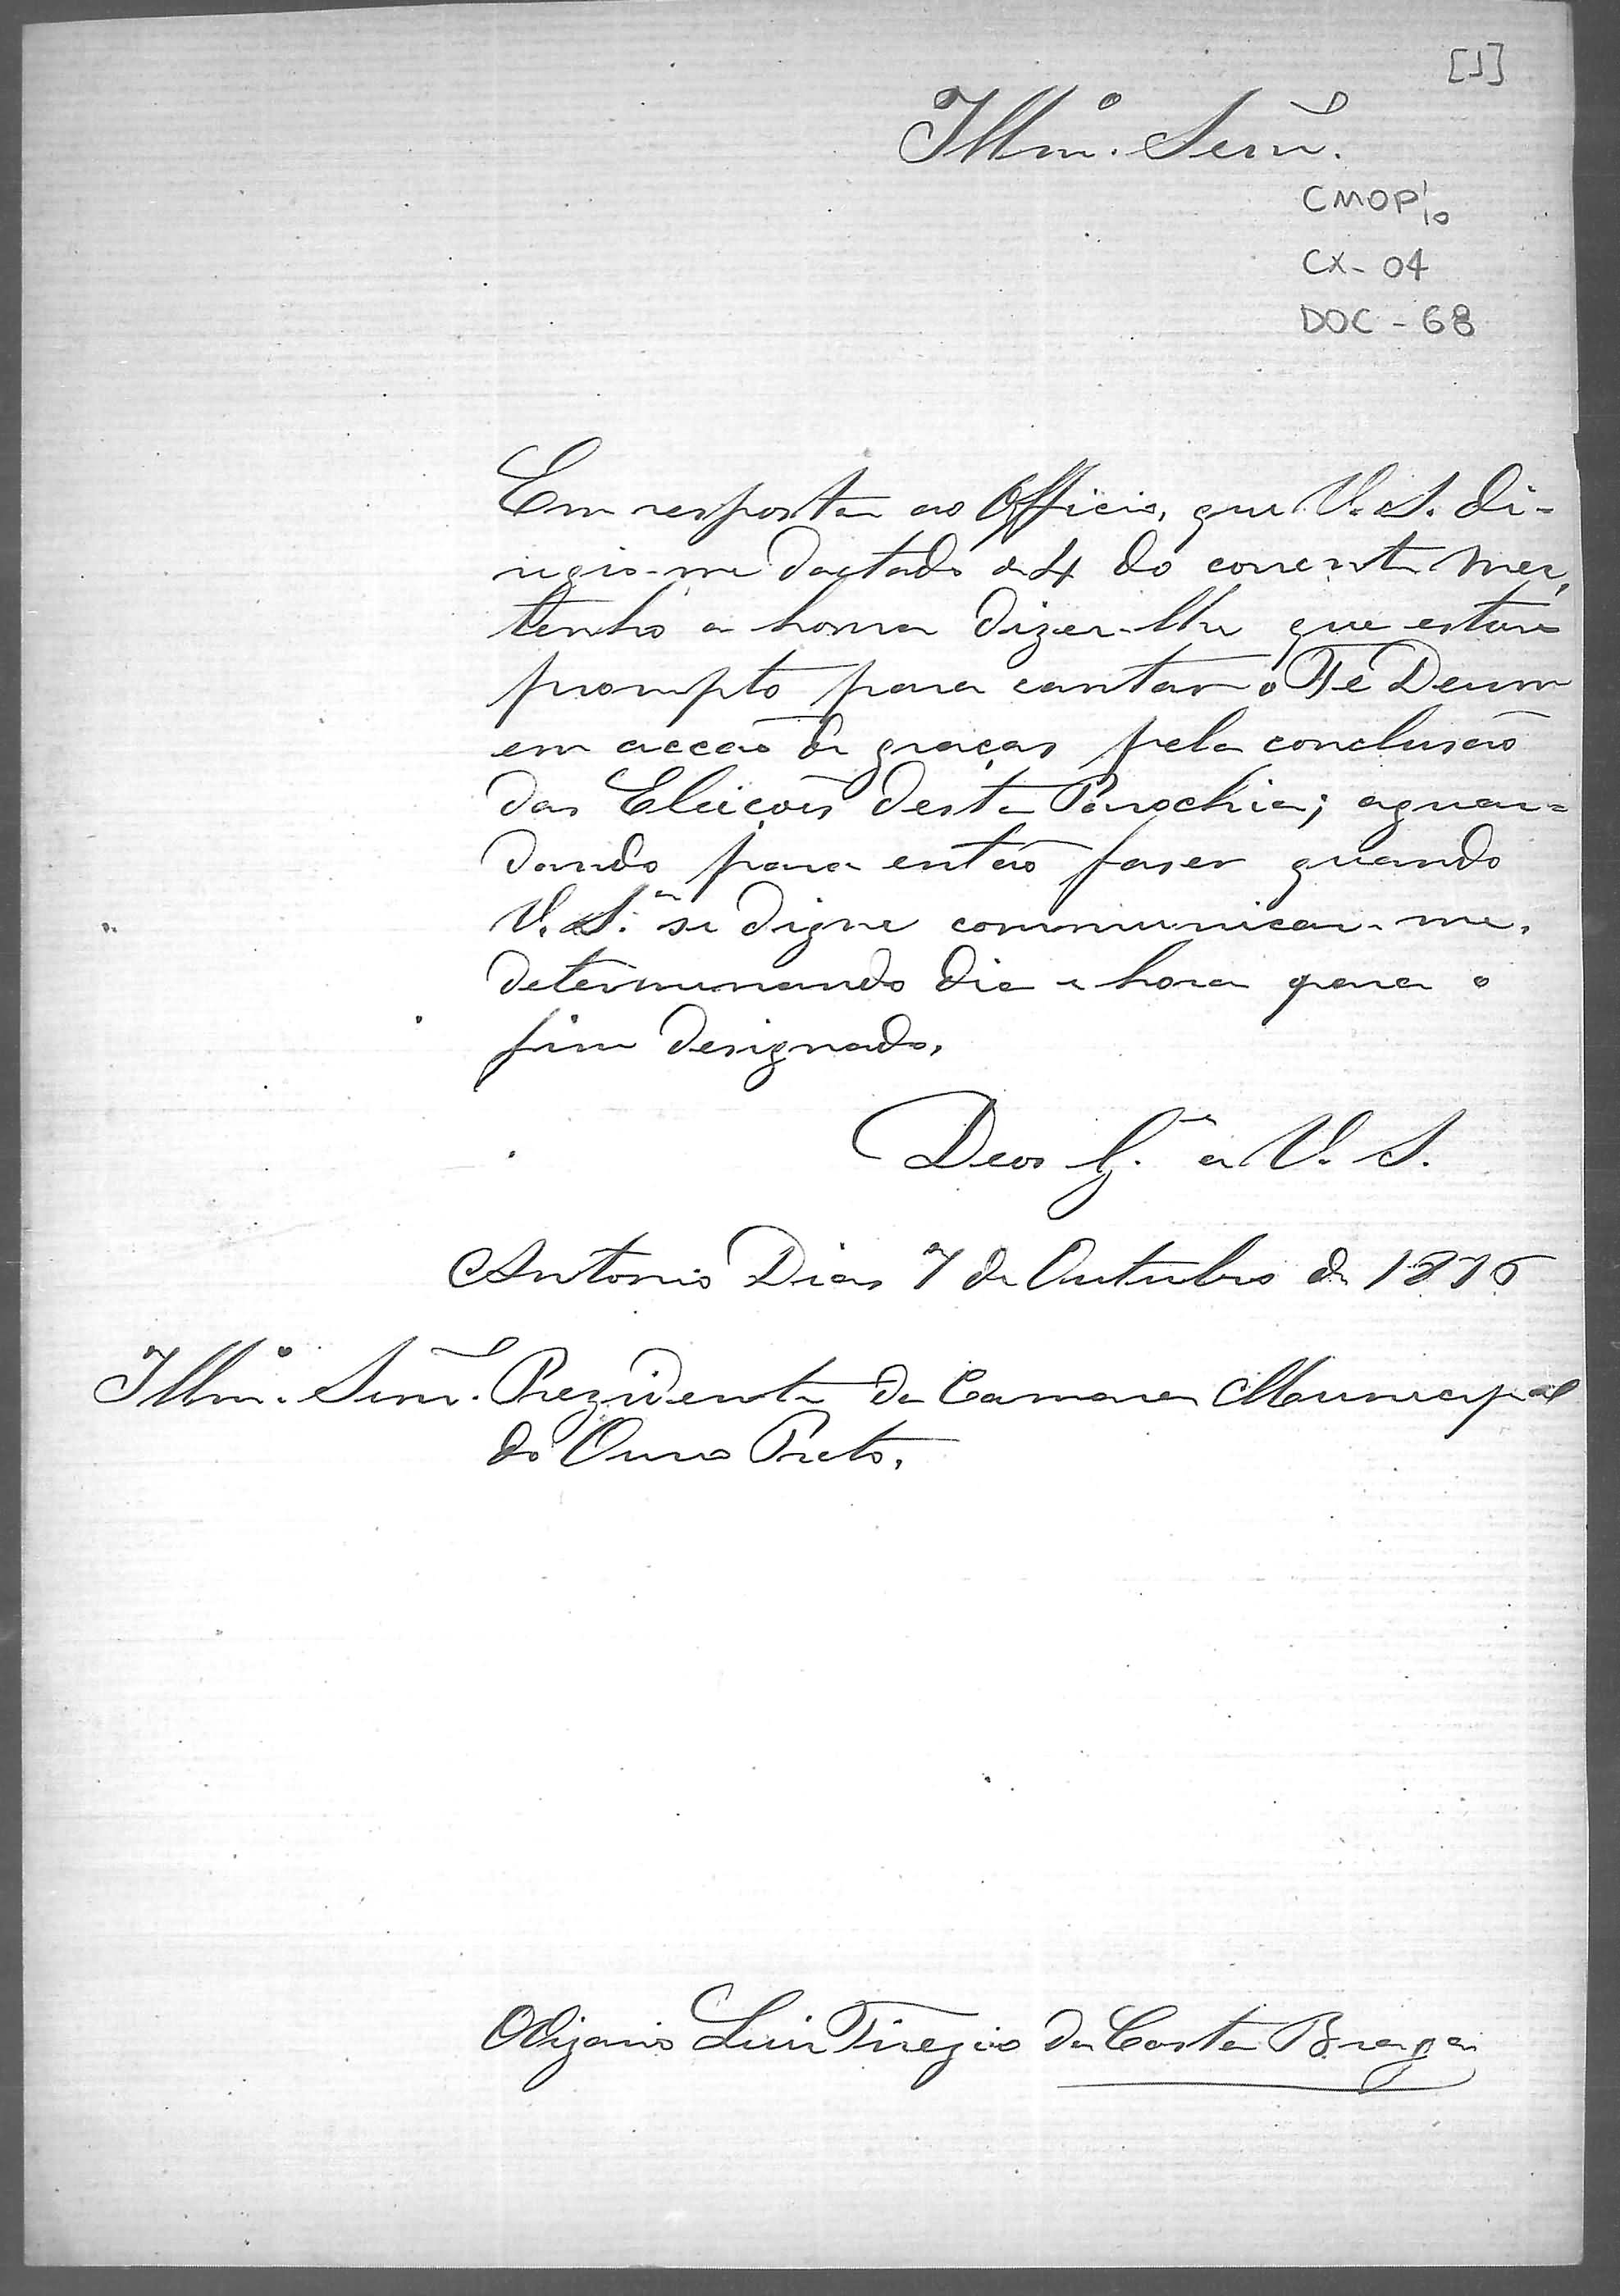 [1]
Illm.º Senr.
CMOP 1/10
CX - 04
DOC - 68
Em resposta ao Officio, que V. S. di-
regio-me dactado de 4 do corrente mez,
tenho a honra dizer-lhe que estou
prompto para cantar o Te Deum
em accaõ de graças pela conclusaõ
das Eleicoẽs desta Parochia; aguar=
dando para entaõ faser quando
V. S.ª se digne communicar-me,
determinando dia e hora para o
fim designado.
Deos G.e a V. S.
Antonio Dias 7 de Outubro de 1876
Illm.º Senr. Prezidente da Camara Municipal
do Ouro Preto.
O Vigario Luis da Costa Braga